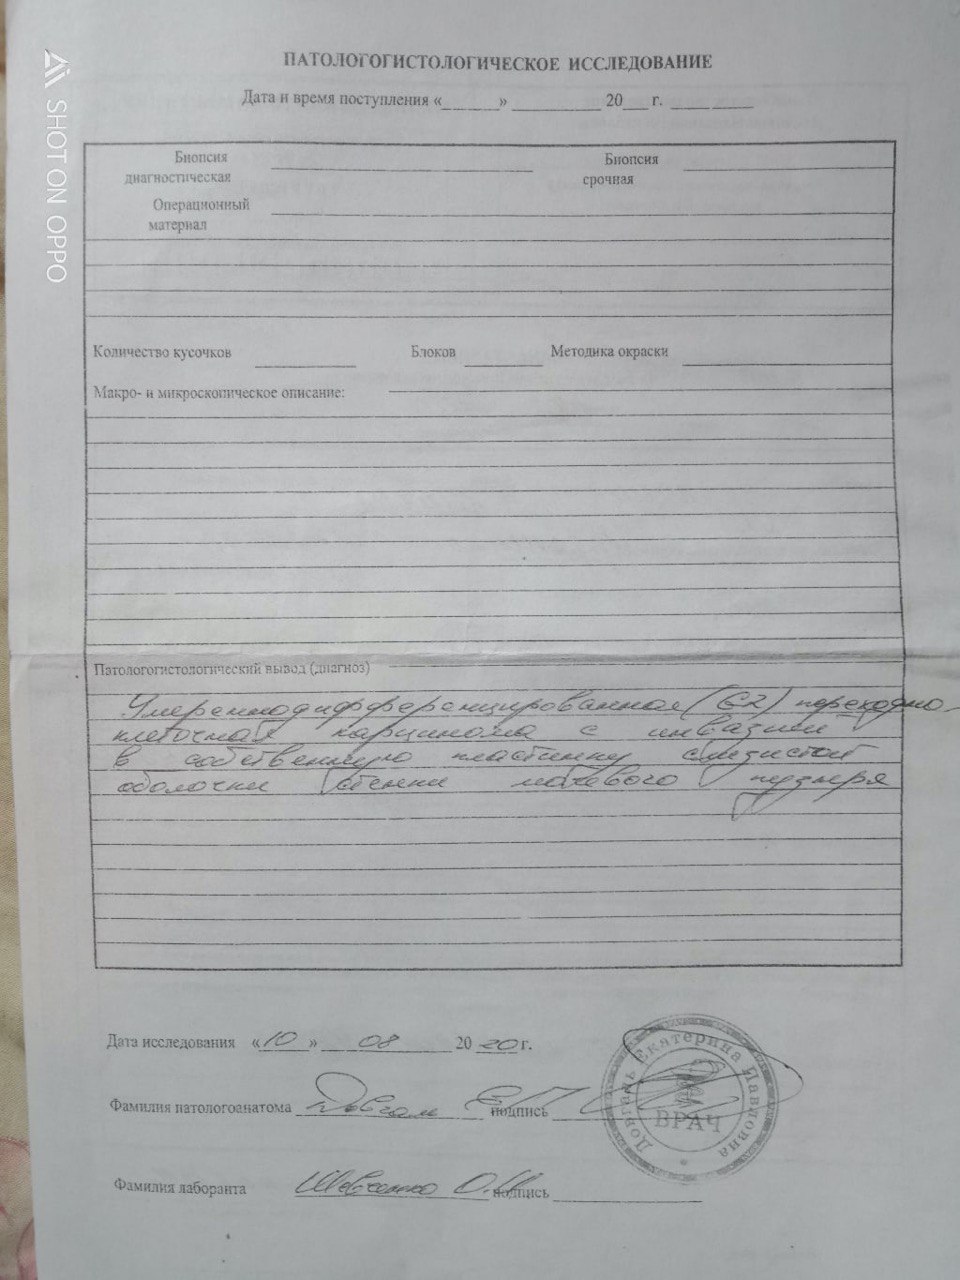 SHOT ON OPPO
ПАТОЛОГОГИСТОЛОГИЧЕСКОЕ ИССЛЕДОВАНИЕ
Дата и время поступления «______» _________ 20___ г. _________
Биопсия диагностическая
Биопсия срочная
Операционный материал
Количество кусочков
Блоков
Методика окраски
Макро- и микроскопическое описание:
Патологогистологический вывод (диагноз)
Умереннодифференцированная (G2) переходно-
клеточная карцинома с инвазией
в собственную пластинку слизистой
оболочки стенки мочевого пузыря
Дата исследования «10» 08 2020г.
Фамилия патологоанатома Довгань Е.П. подпись
Довгань Екатерина Павловна
ВРАЧ
Фамилия лаборанта Шевченко О.Н. подпись